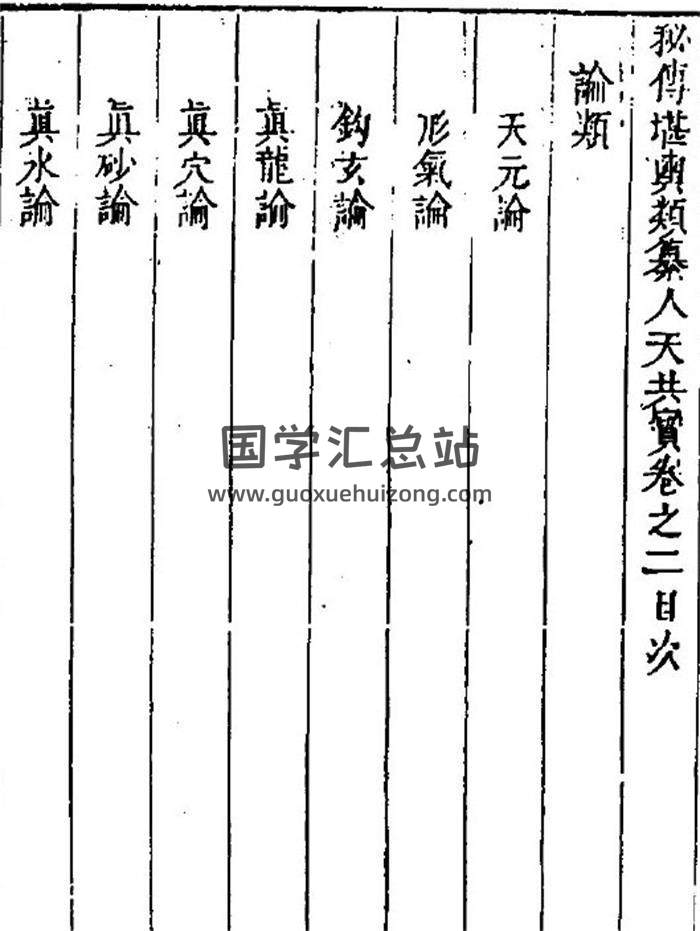 秘傳堪輿類纂人天共寳卷之二目次
論類
天元論
形氣論
鈎玄論
眞龍論
眞穴論
眞砂論
眞水論
国学汇总站
www.guoxuehuizong.com